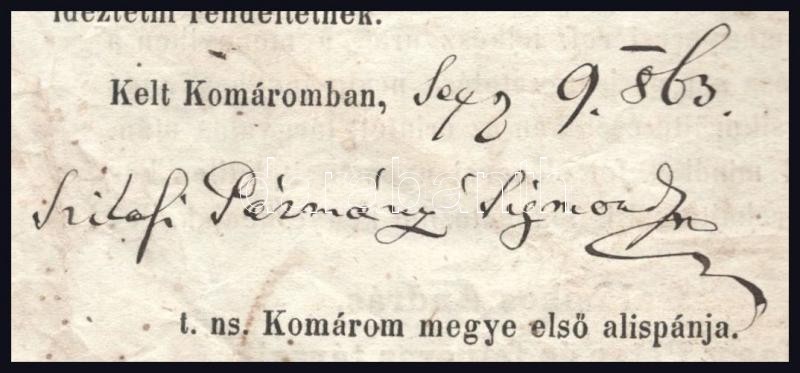 idéztetni rendeltetnek.
Kelt Komáromban, 9. 863.
Szilasi Pázmány Sigmond
t. ns. Komárom megye első alispánja.
darabanth